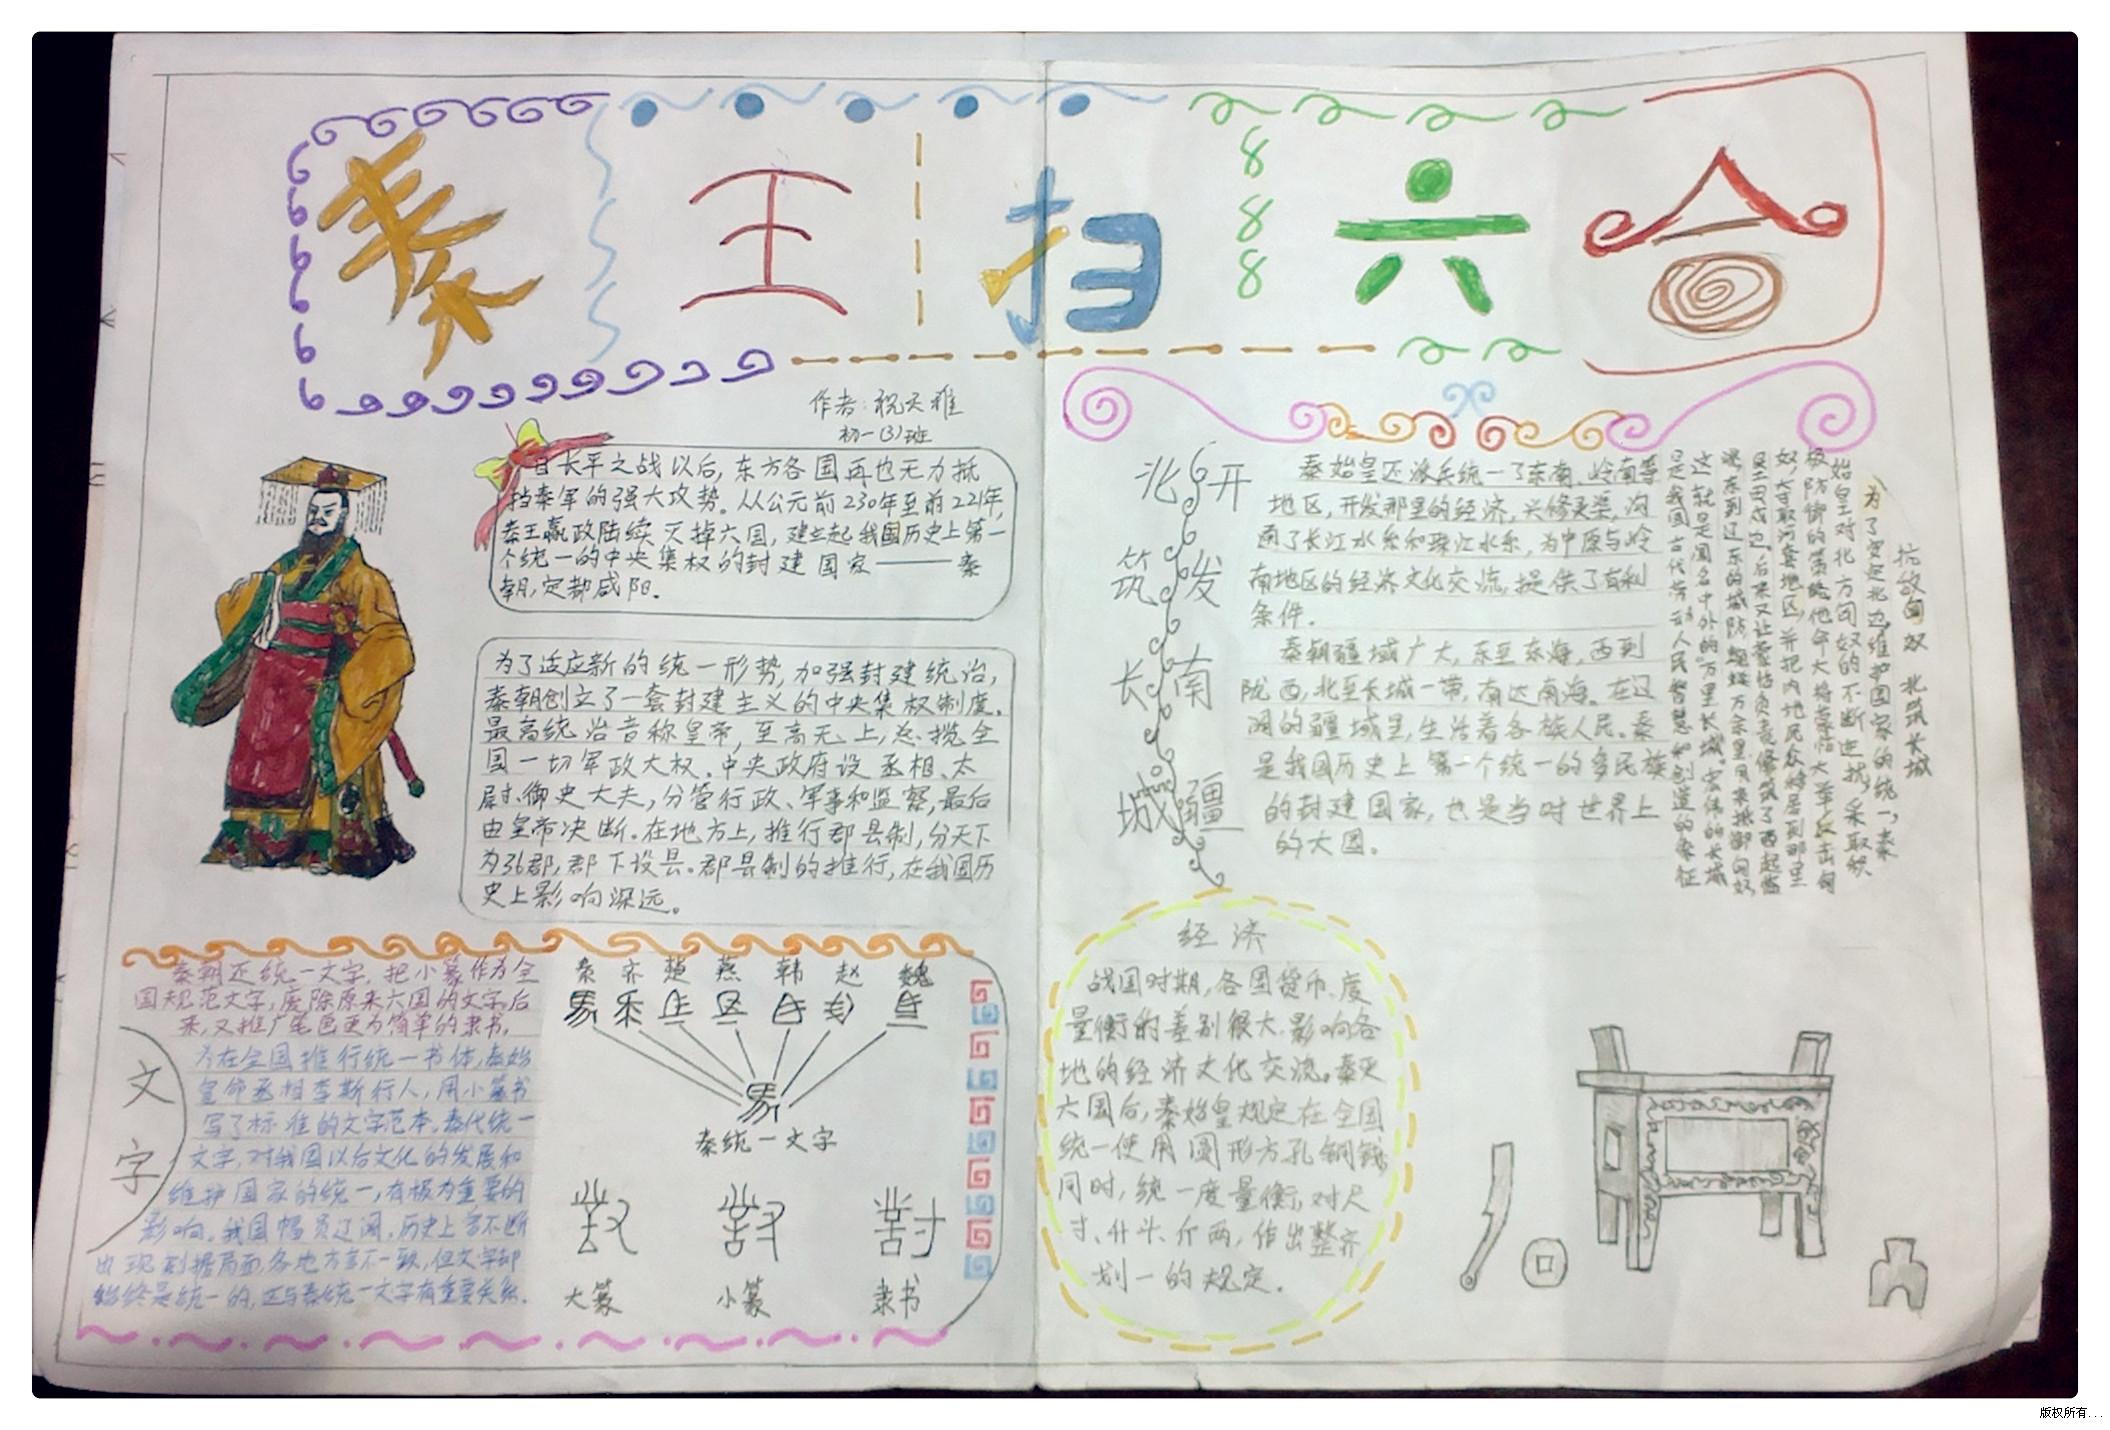 秦王扫六合
作者:祝天雅
初一(3)班
自长平之战以后,东方各国再也无力抵
挡秦军的强大攻势。从公元前230年至前221年,
秦王嬴政陆续灭掉六国,建立起我国历史上第一
个统一的中央集权的封建国家——秦
朝,定都咸阳。
为了适应新的统一形势,加强封建统治,
秦朝创立了一套封建主义的中央集权制度。
最高统治者称皇帝,至高无上,总揽全
国一切军政大权。中央政府设丞相、太
尉、御史大夫,分管行政、军事和监察,最后
由皇帝决断。在地方上,推行郡县制,分天下
为36郡,郡下设县。郡县制的推行,在我国历
史上影响深远。
文字
秦朝还统一文字,把小篆作为全
国规范文字,废除原来六国的文字。后
来,又推广笔画更为简单的隶书。
为在全国推行统一书体,秦始
皇命丞相李斯行人,用小篆书
写了标准的文字范本。秦代统一
文字,对我国以后文化的发展和
维护国家的统一,有极为重要的
影响。我国幅员辽阔,历史上言不断
出现割据局面,各地方言不一致,但文字却
始终是统一的,这与秦统一文字有重要关系。
秦 齐 楚 燕 韩 赵 魏
秦统一文字
大篆 小篆 隶书
开发南疆
北筑长城
秦始皇还派兵统一了东南、岭南等
地区,开发那里的经济,兴修灵渠,沟
通了长江水系和珠江水系,为中原与岭
南地区的经济文化交流,提供了有利
条件。
秦朝疆域广大,东至东海,西到
陇西,北至长城一带,南达南海。在辽
阔的疆域里,生活着各族人民。秦
是我国历史上第一个统一的多民族
的封建国家,也是当时世界上
的大国。
抗敌匈奴 北筑长城
为了安定北边,维护国家的统一,秦
始皇对北方匈奴的不断进扰,采取积
极防御的策略,他命大将蒙恬大军反击匈
奴,夺取河套地区,并把内地民众移居到那里
垦田戍边。后来又让蒙恬负责修筑了西起临
洮,东到辽东的城防,绵延万余里,用来抵御匈奴,
这就是闻名中外的“万里长城”。宏伟的长城
是我国古代劳动人民智慧和创造的象征
经济
战国时期,各国货币、度
量衡的差别很大,影响各
地的经济文化交流。秦灭
六国后,秦始皇规定在全国
统一使用圆形方孔铜钱,
同时,统一度量衡,对尺
寸、升斗、斤两,作出整齐
划一的规定。
版权所有...